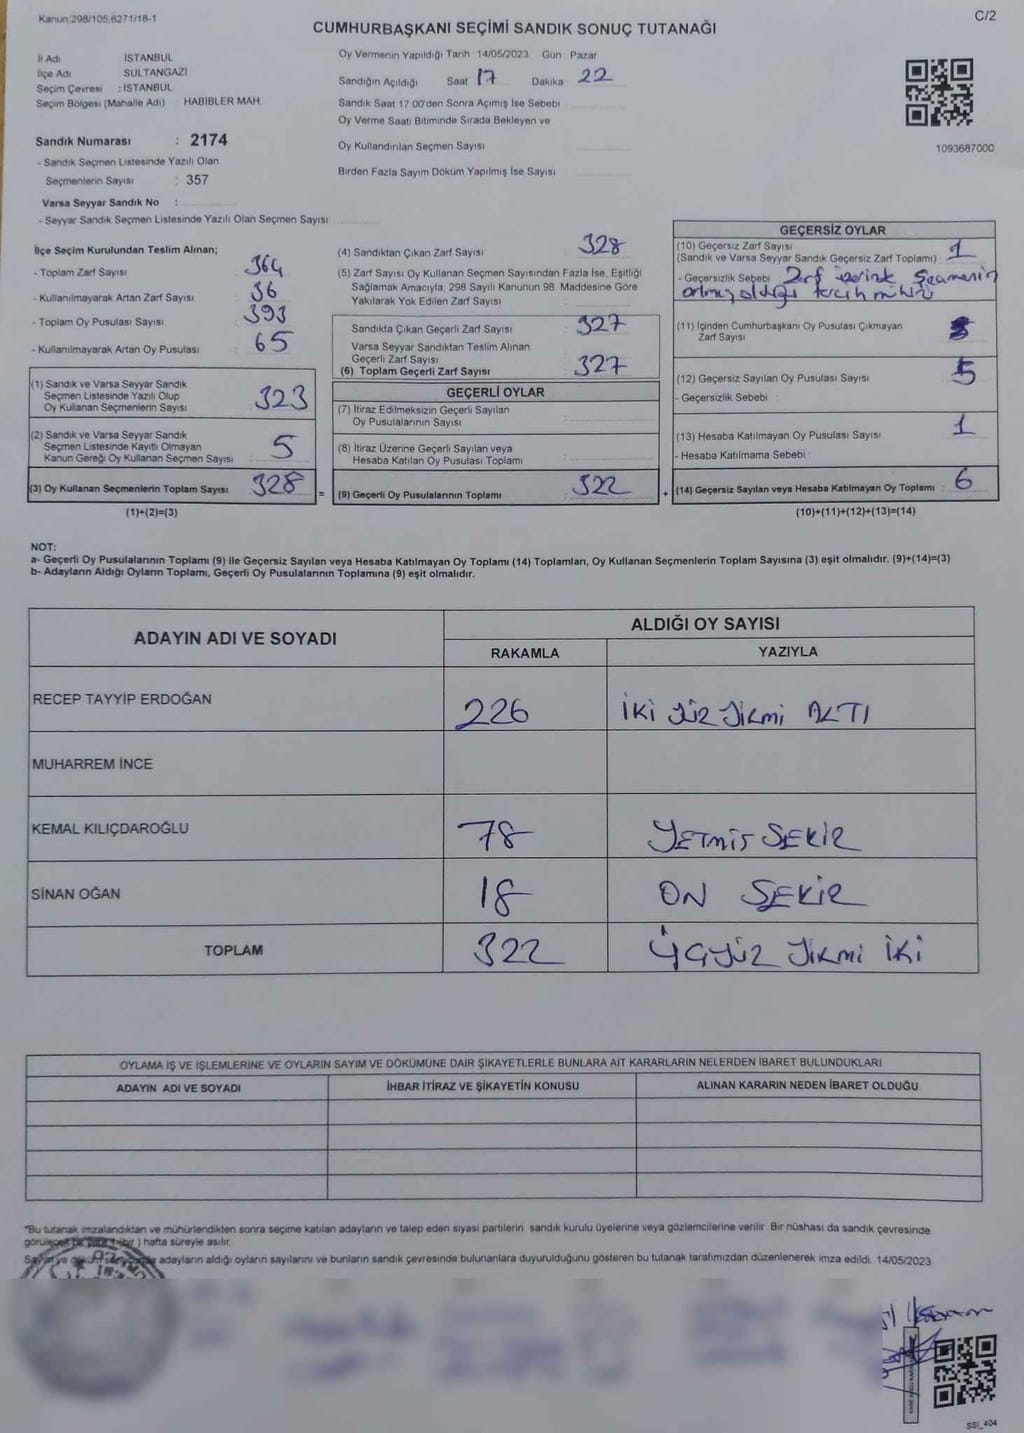 Kanun 298/105,6271/18-1
C/2
CUMHURBAŞKANI SEÇİMİ SANDIK SONUÇ TUTANAĞI
İl Adı İSTANBUL
İlçe Adı SULTANGAZİ
Seçim Çevresi : İSTANBUL
Seçim Bölgesi (Mahalle Adı) HABİBLER MAH.
Sandık Numarası : 2174
- Sandık Seçmen Listesinde Yazılı Olan
Seçmenlerin Sayısı : 357
Varsa Seyyar Sandık No :
- Seyyar Sandık Seçmen Listesinde Yazılı Olan Seçmen Sayısı
Oy Vermenin Yapıldığı Tarih 14/05/2023 Gün Pazar
Sandığın Açıldığı Saat 17 Dakika 22
Sandık Saat 17 00'den Sonra Açımış İse Sebebi
Oy Verme Saati Bitiminde Sırada Bekleyen ve
Oy Kullandırılan Seçmen Sayısı
Birden Fazla Sayım Döküm Yapılmış İse Sayısı
1093687000
İlçe Seçim Kurulundan Teslim Alınan;
- Toplam Zarf Sayısı 364
- Kullanılmayarak Artan Zarf Sayısı 36
- Toplam Oy Pusulası Sayısı 393
- Kullanılmayarak Artan Oy Pusulası 65
(1) Sandık ve Varsa Seyyar Sandık
Seçmen Listesinde Yazılı Olup
Oy Kullanan Seçmenlerin Sayısı 323
(2) Sandık ve Varsa Seyyar Sandık
Seçmen Listesinde Kayıtlı Olmayan
Kanun Gereği Oy Kullanan Seçmen Sayısı 5
(3) Oy Kullanan Seçmenlerin Toplam Sayısı 328 =
(1)+(2)=(3)
(4) Sandıktan Çıkan Zarf Sayısı 328
(5) Zarf Sayısı Oy Kullanan Seçmen Sayısından Fazla İse, Eşitliği
Sağlamak Amacıyla, 298 Sayılı Kanunun 98. Maddesine Göre
Yakılarak Yok Edilen Zarf Sayısı
Sandıkta Çıkan Geçerli Zarf Sayısı 327
Varsa Seyyar Sandıktan Teslim Alınan
Geçerli Zarf Sayısı
(6) Toplam Geçerli Zarf Sayısı 327
GEÇERLİ OYLAR
(7) İtiraz Edilmeksizin Geçerli Sayılan
Oy Pusulalarının Sayısı
(8) İtiraz Üzerine Geçerli Sayılan veya
Hesaba Katılan Oy Pusulası Toplamı
(9) Geçerli Oy Pusulalarının Toplamı 322 +
GEÇERSİZ OYLAR
(10) Geçersiz Zarf Sayısı
(Sandık ve Varsa Seyyar Sandık Geçersiz Zarf Toplamı) 1
- Geçersizlik Sebebi Zarf üzerinde Seçmenin
olmuş olduğu tercih mührü
(11) İçinden Cumhurbaşkanı Oy Pusulası Çıkmayan
Zarf Sayısı
(12) Geçersiz Sayılan Oy Pusulası Sayısı 5
- Geçersizlik Sebebi
(13) Hesaba Katılmayan Oy Pusulası Sayısı 1
- Hesaba Katılmama Sebebi
(14) Geçersiz Sayılan veya Hesaba Katılmayan Oy Toplamı 6
(10)+(11)+(12)+(13)=(14)
NOT:
a- Geçerli Oy Pusulalarının Toplamı (9) ile Geçersiz Sayılan veya Hesaba Katılmayan Oy Toplamı (14) Toplamları, Oy Kullanan Seçmenlerin Toplam Sayısına (3) eşit olmalıdır. (9)+(14)=(3)
b- Adayların Aldığı Oyların Toplamı, Geçerli Oy Pusulalarının Toplamına (9) eşit olmalıdır.
ADAYIN ADI VE SOYADI
ALDIĞI OY SAYISI
RAKAMLA YAZIYLA
RECEP TAYYİP ERDOĞAN 226 İKİ YÜZ YİRMİ ALTI
MUHARREM İNCE
KEMAL KILIÇDAROĞLU 78 YETMİŞ SEKİZ
SİNAN OĞAN 18 ON SEKİZ
TOPLAM 322 ÜÇYÜZ YİRMİ İKİ
OYLAMA İŞ VE İŞLEMLERİNE VE OYLARIN SAYIM VE DÖKÜMÜNE DAİR ŞİKAYETLERLE BUNLARA AİT KARARLARIN NELERDEN İBARET BULUNDUKLARI
ADAYIN ADI VE SOYADI İHBAR İTİRAZ VE ŞİKAYETİN KONUSU ALINAN KARARIN NEDEN İBARET OLDUĞU
*Bu tutanak imzalandıktan ve mühürlendikten sonra seçime katılan adayların ve talep eden siyasi partilerin sandık kurulu üyelerine veya gözlemcilerine verilir. Bir nüshası da sandık çevresinde
görülecek bir yere 1 (bir) hafta süreyle asılır.
Sayım ve döküm sonucunda adayların aldığı oyların sayılarını ve bunların sandık çevresinde bulunanlara duyurulduğunu gösteren bu tutanak tarafımızdan düzenlenerek imza edildi. 14/05/2023
SSI_404